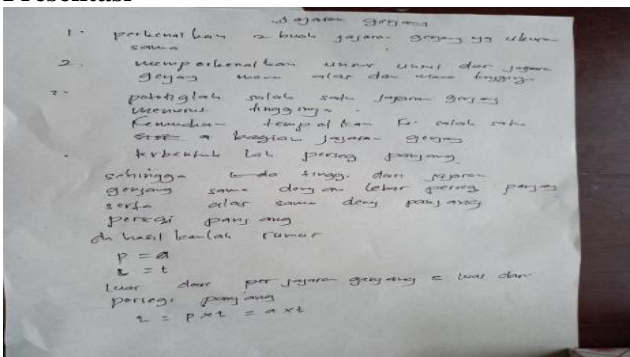 Jajaran genjang
1. perkenalkan 2 buah jajaran genjang yg ukuran
sama
2. memperkenalkan unsur unsur dari jajaran
genjang mana alas dan mana tinggi
potonglah salah satu jajaran genjang
menurut tingginya.
Kemudian tempelkan ke salah satu
bagian jajaran genjang
terbentuk lah persegi panjang
sehingga tinggi dari jajaran
genjang sama dengan lebar persegi panjang
serta alas sama deng panjang
persegi panjang
di hasil kanlah rumus
p = a
l = t
luas dari jajaran genjang = luas dari
persegi panjang
= p x t = a x t